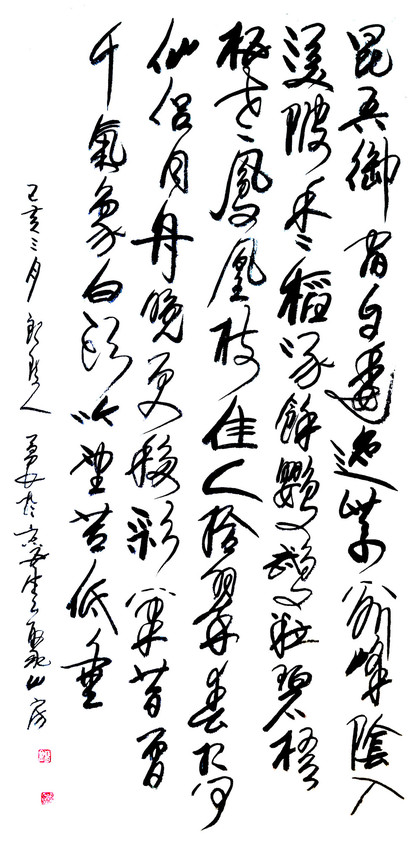 昆吾御宿自逶迤紫閣峰陰入
渼陂香稻啄餘鸚鵡粒碧梧
棲老鳳凰枝佳人拾翠春相問
仙侶同舟晚更移彩筆昔曾
干氣象白頭吟望苦低垂
己亥三月 人 山房